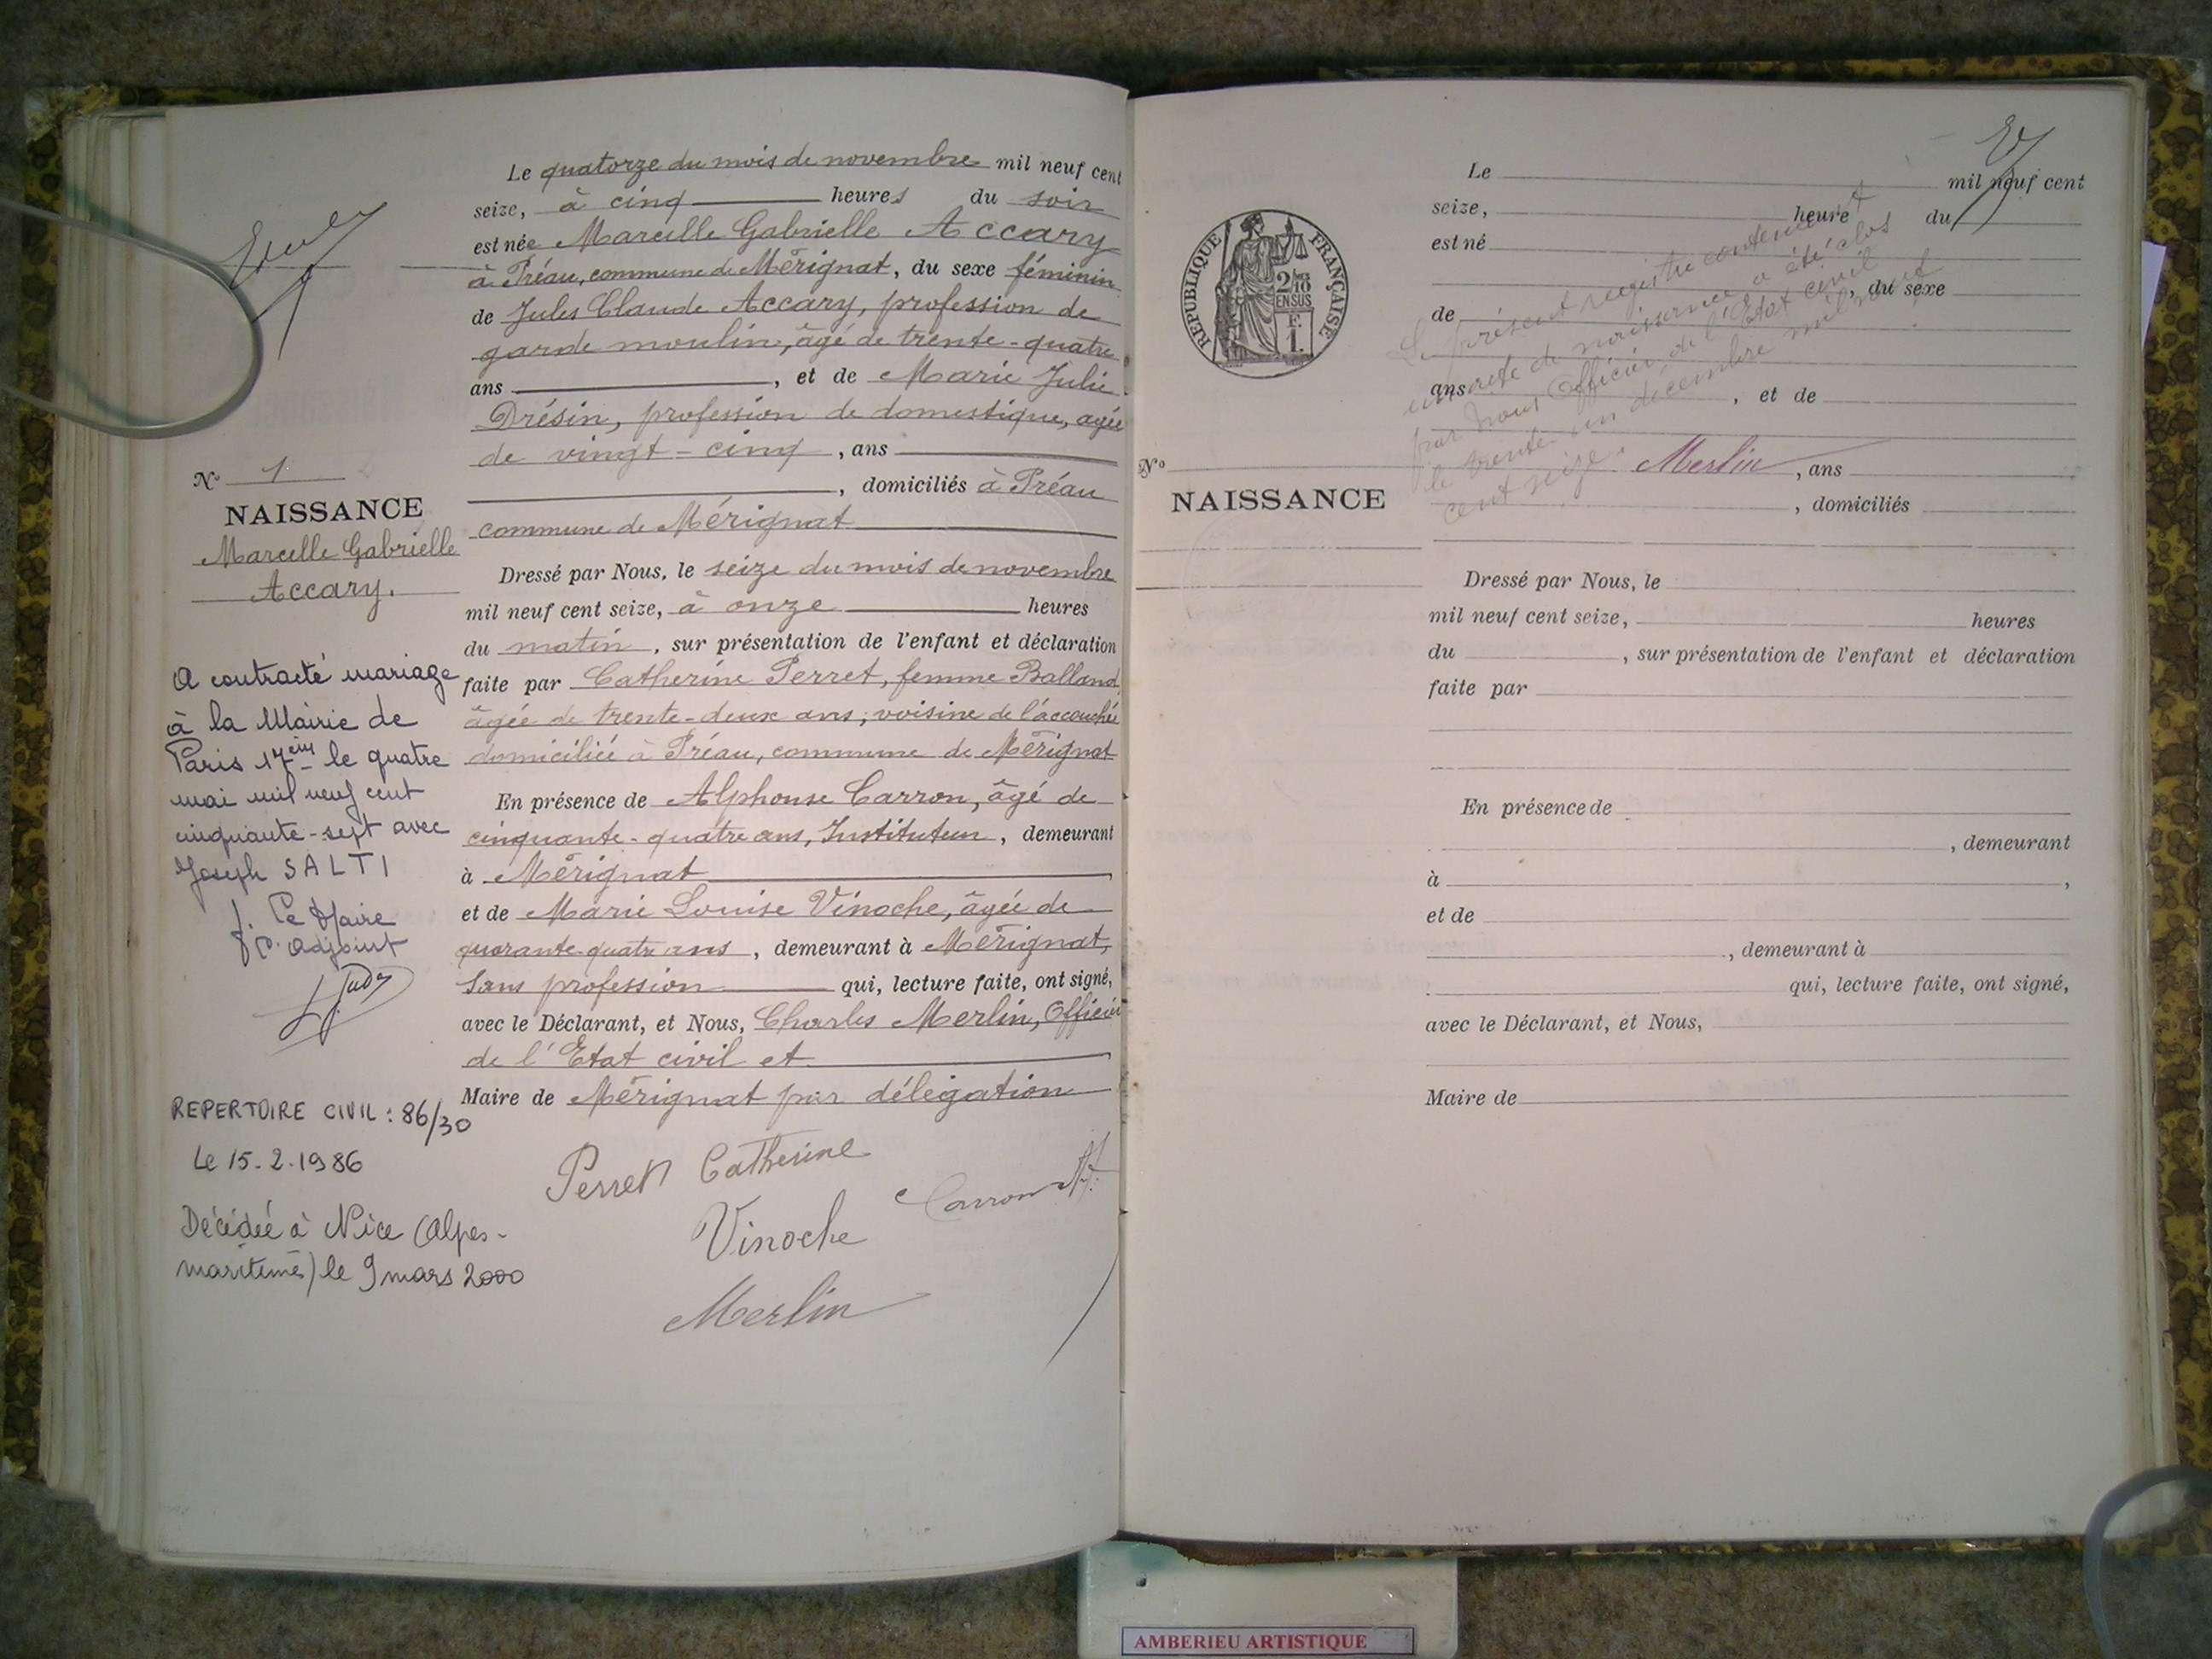 Le quatorze du mois de novembre mil neuf cent
seize, à cinq heures du soir
est née Marcelle Gabrielle Accary
à Préau, commune de Mérignat, du sexe féminin
de Jules Claude Accary, profession de
garde moulin, âgé de trente-quatre
ans, et de Marie Julie
Drésin, profession de domestique, agée
de vingt-cinq, ans
, domiciliés à Préau
commune de Mérignat
Dressé par Nous, le seize du mois de novembre
mil neuf cent seize, à onze heures
du matin, sur présentation de l'enfant et déclaration
faite par Catherine Perret, femme Balland,
âgée de trente-deux ans, voisine de l'accouchée
domiciliée à Préau, commune de Mérignat
En présence de Alphonse Carron, âgé de
cinquante-quatre ans, Instituteur, demeurant
à Mérignat
et de Marie Louise Vinoche, âgée de
quarante-quatre ans, demeurant à Mérignat,
sans profession qui, lecture faite, ont signé,
avec le Déclarant, et Nous, Charles Merlin, Officier
de l'Etat civil et
Maire de Mérignat par délégation
Perret Catherine
Carron
Vinoche
Merlin
No 1
NAISSANCE
Marcelle Gabrielle
Accary.
A contracté mariage
à la Mairie de
Paris 17ème le quatre
mai mil neuf cent
cinquante-sept avec
Joseph SALTI
Le Maire
adjoint
REPERTOIRE CIVIL : 86/30
Le 15-2-1986
Décédée à Nice (Alpes-
maritimes) le 9 mars 2000
REPUBLIQUE FRANÇAISE
2/10
EN SUS
F.
1.
No
NAISSANCE
Le mil neuf cent
seize, heure du
est né
, du sexe
de
ans, et de
, ans
, domiciliés
Le présent registre contenant
un acte de naissance a été clos
par nous Officier de l'Etat civil
le trente-un décembre mil neuf
cent seize. Merlin
Dressé par Nous, le
mil neuf cent seize, heures
du , sur présentation de l'enfant et déclaration
faite par
En présence de
, demeurant
à ,
et de
, demeurant à
qui, lecture faite, ont signé,
avec le Déclarant, et Nous,
Maire de
AMBERIEU ARTISTIQUE